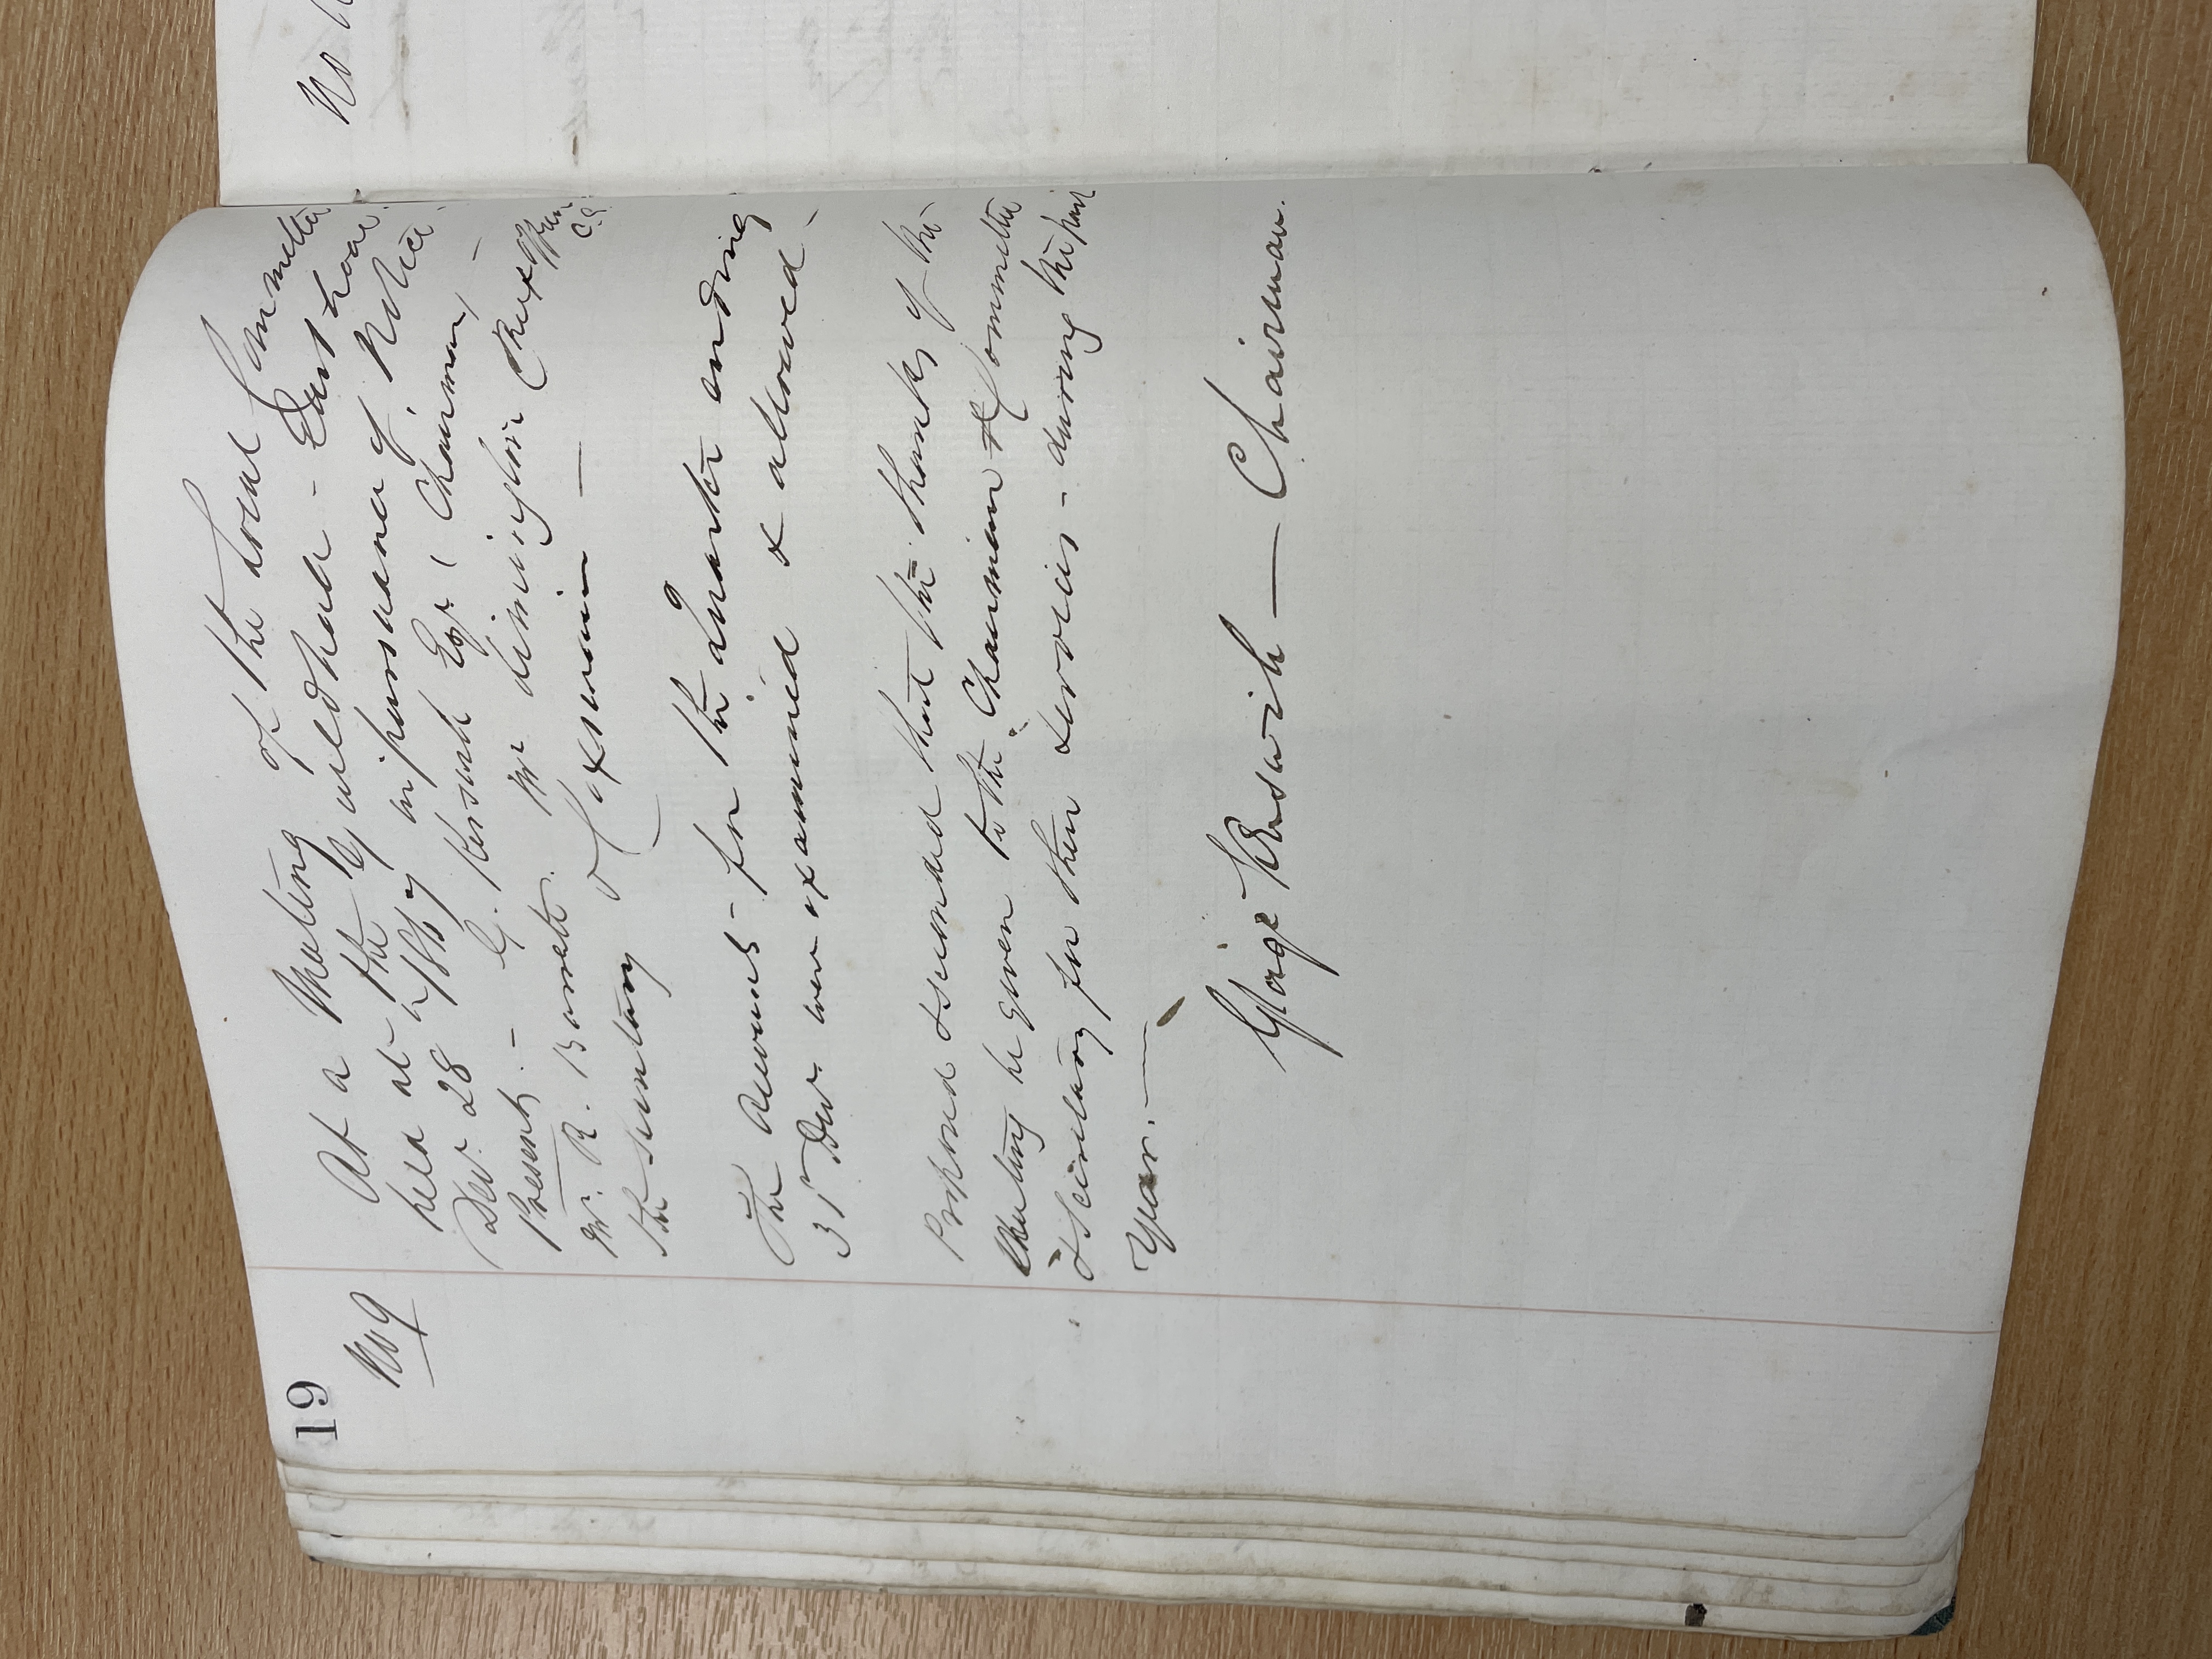 19
No 9
At a Meeting of the Local Committee
held at the Guildhall - East Looe
Decr 28 in pursuance of Notice -
Present - G. Keswick Esqr (Chairman) -
Mr. R. Barrett. Mr
the Secretary
The Accounts - for the Quarter ending
31 Decr. were examined & allowed -
Proposed & seconded that the thanks of the
Meeting be given to the Chairman & Committee
& Secretary for their Services - during the past
Year. —
George Keswick — Chairman.
No